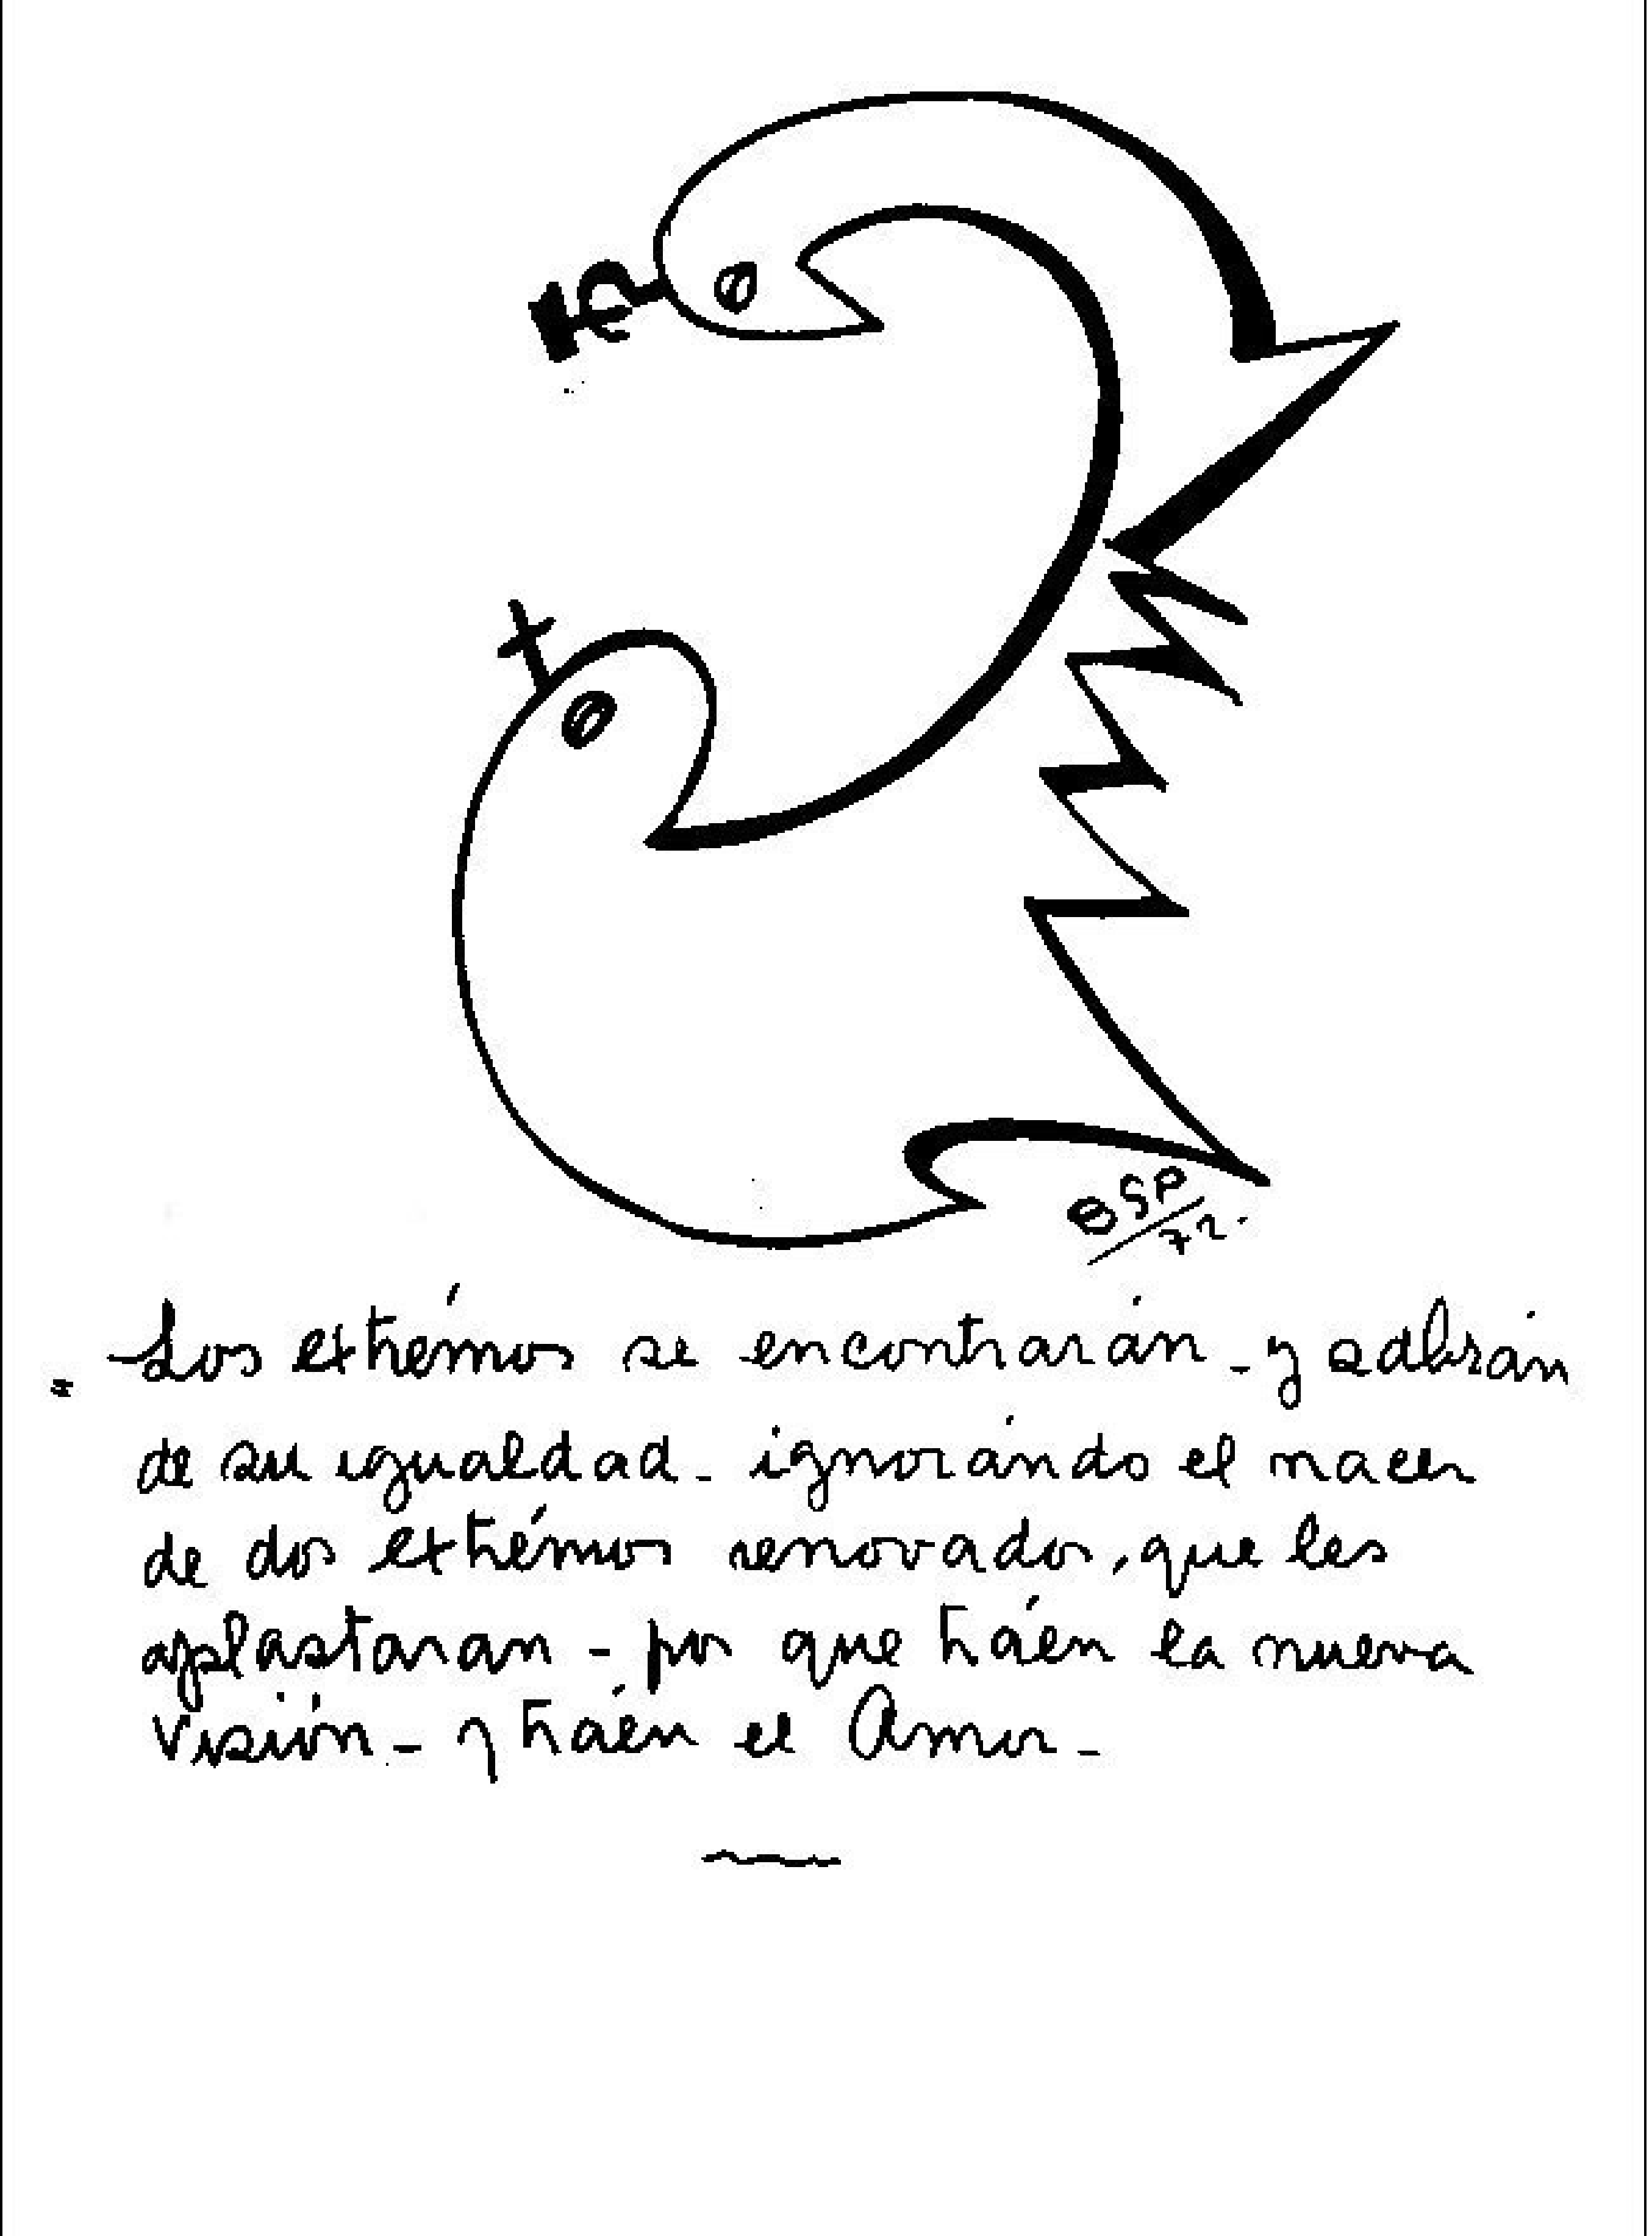 BSP
72.
" Los extrémos se encontrarán - y sabrán
de su igualdad - ignorándo el nacer
de dos extrémos renovados, que les
aplastaran - por que tráen la nueva
Visión - y tráen el Amor -